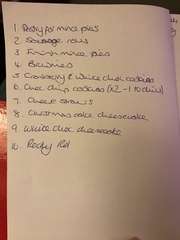 1. Pastry for mince pies
2. Sausage rolls
3. Finish mince pies
4. Brownies
5. Cranberry & white choc cookies
6. Choc chip cookies (x2 - 1 to
7. Cheese straws
8. Christmas cake cheesecake
9. White choc cheesecake
10. Rocky Rd